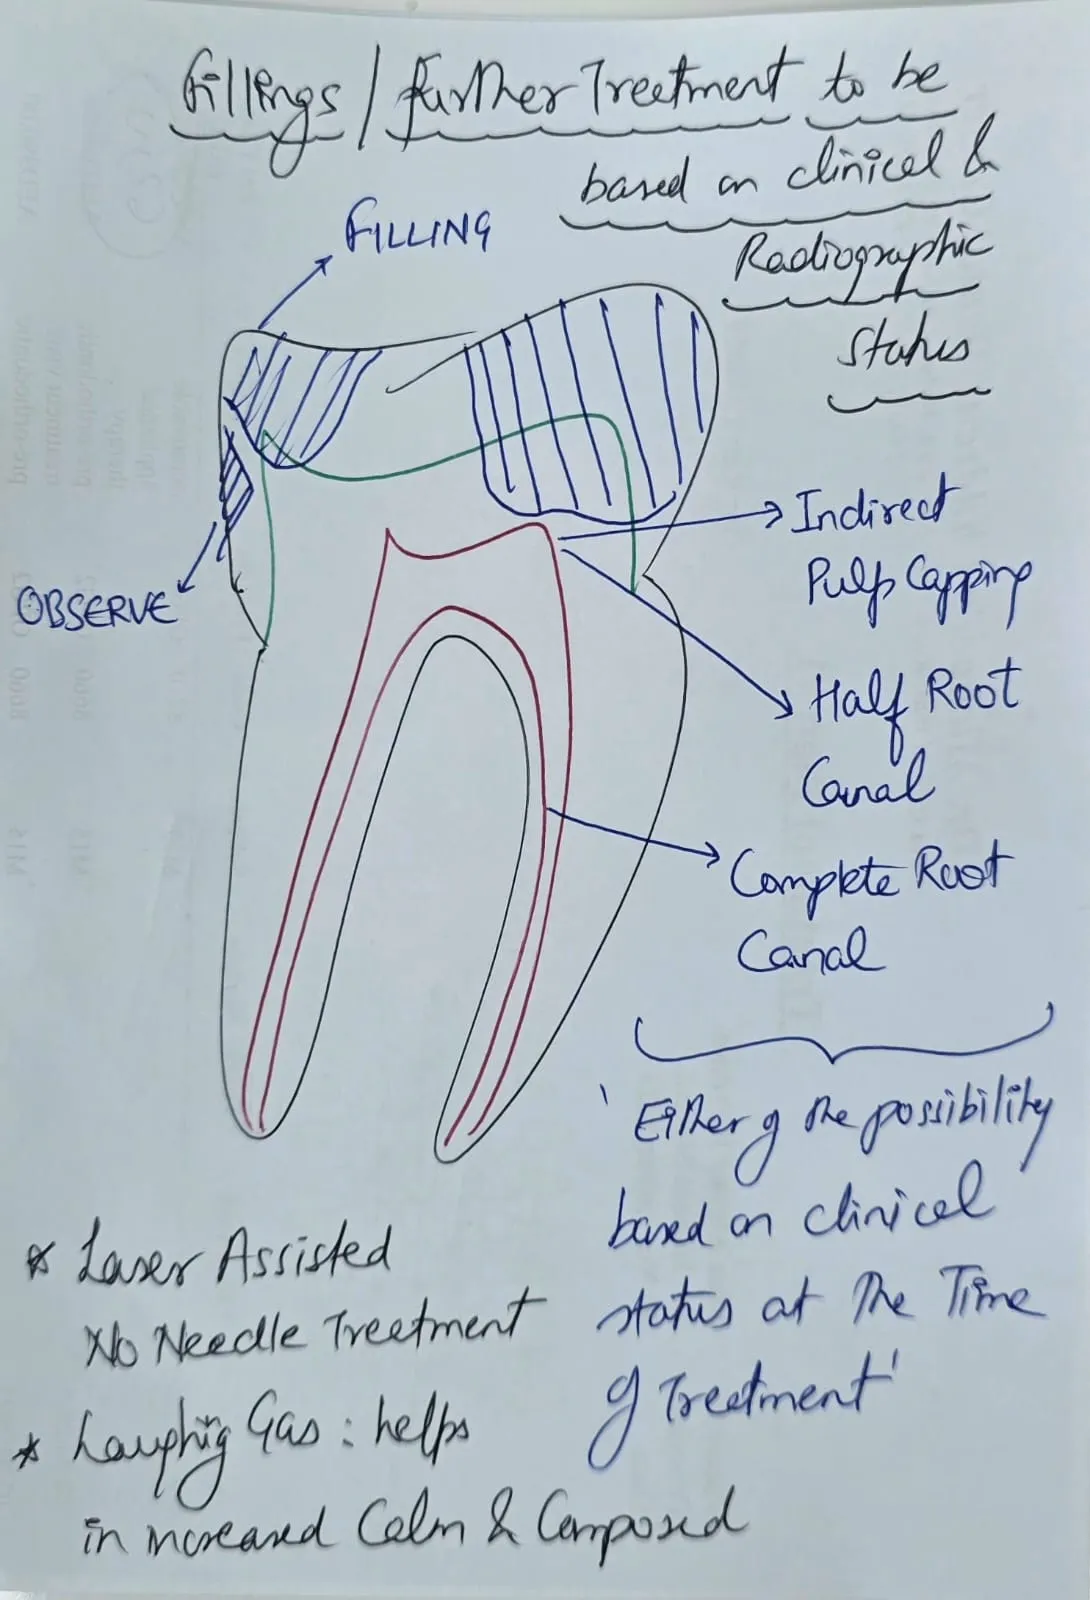 Fillings / further Treatment to be
based on clinical &
Radiographic
status
FILLING
OBSERVE
Indirect
Pulp Capping
Half Root
Canal
Complete Root
Canal
'Either of the possibility
based on clinical
status at the Time
of Treatment'
* Laser Assisted
No Needle Treatment
* Laughig Gas : helps
in increased Calm & Composed